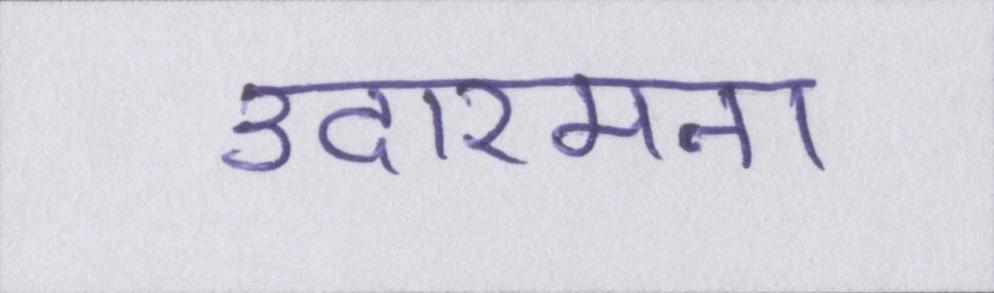 उदारमना